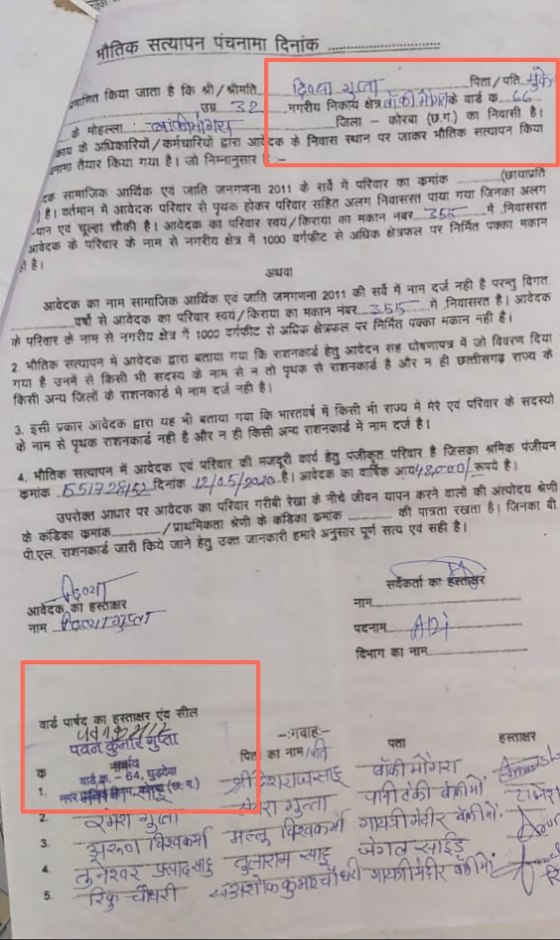 भौतिक सत्यापन पंचनामा दिनांक
किया जाता है कि श्री/श्रीमति दिव्या गुप्ता पिता/पति
उम्र 32 नगरीय निकाय क्षेत्र बांकी मोंगरा के वार्ड क 66
के मोहल्ला बांकीमोंगरा जिला - कोरबा (छ.ग.) का निवासी है।
के अधिकारियों/कर्मचारियों द्वारा आवेदक के निवास स्थान पर जाकर भौतिक सत्यापन किया
तैयार किया गया है। जो निम्नानुसार है :-
सामाजिक आर्थिक एवं जाति जनगणना 2011 के सर्वे में परिवार का कमांक (छायाप्रति
है। वर्तमान में आवेदक परिवार से पृथक होकर परिवार सहित अलग निवासरत पाया गया जिनका अलग
एवं चूल्हा चौकी है। आवेदक का परिवार स्वयं/किराया का मकान नबर 355 में निवासरत
आवेदक के परिवार के नाम से नगरीय क्षेत्र में 1000 वर्गफीट से अधिक क्षेत्रफल पर निर्मित पक्का मकान
है।
अथवा
आवेदक का नाम सामाजिक आर्थिक एवं जाति जनगणना 2011 की सर्वे में नाम दर्ज नही है परन्तु विगत
वर्षो से आवेदक का परिवार स्वयं/किराया का मकान नंबर 355 में निवासरत है। आवेदक
के परिवार के नाम से नगरीय क्षेत्र में 1000 वर्गफीट से अधिक क्षेत्रफल पर निर्मित पक्का मकान नही है।
2. भौतिक सत्यापन में आवेदक द्वारा बताया गया कि राशनकार्ड हेतु आवेदन सह घोषणापत्र में जो विवरण दिया
गया है उनमें से किसी भी सदस्य के नाम से न तो पृथक से राशनकार्ड है और न ही छत्तीसगढ़ राज्य के
किसी अन्य जिलों के राशनकार्ड में नाम दर्ज नही है।
3. इसी प्रकार आवेदक द्वारा यह भी बताया गया कि भारतवर्ष में किसी भी राज्य में मेरे एवं परिवार के सदस्यो
के नाम से पृथक राशनकार्ड नही है और न ही किसी अन्य राशनकार्ड मे नाम दर्ज है।
4. भौतिक सत्यापन में आवेदक एवं परिवार की मजदूरी कार्य हेतु पंजीकृत परिवार है जिसका श्रमिक पंजीयन
कमांक 551728152 दिनांक 12/05/2020 है। आवेदक का वार्षिक आय 48,000/ रूपये है।
उपरोक्त आधार पर आवेदक का परिवार गरीबी रेखा के नीचे जीवन यापन करने वालों की अत्योदय श्रेणी
के कंडिका कमांक /प्राथमिकता श्रेणी के कंडिका कमांक की पात्रता रखता है। जिनका बी.
पी.एल. राशनकार्ड जारी किये जाने हेतु उक्त जानकारी हमारे अनुसार पूर्ण सत्य एवं सही है।
दिव्या
आवेदक का हस्ताक्षर
नाम दिव्या गुप्ता
सर्वेकर्ता का हस्ताक्षर
नाम
पदनाम
विभाग का नाम
वार्ड पार्षद का हस्ताक्षर एंव सील
पवन कुमार गुप्ता
पार्षद
वार्ड क्र. - 64,
-:गवाहः-
क पिता का नाम/पति पता हस्ताक्षर
1. साहू बॉकी मोंगरा
2. रमेश गुप्ता गुप्ता पानी टंकी
3. अरूण विश्वकर्मा मल्लू विश्वकर्मा गायत्री मंदिर
4. प्रसाद साहू तुलाराम साहू जंगल साईड
5. रिंकु चौधरी अशोक कुमार चौधरी गायत्री मंदिर